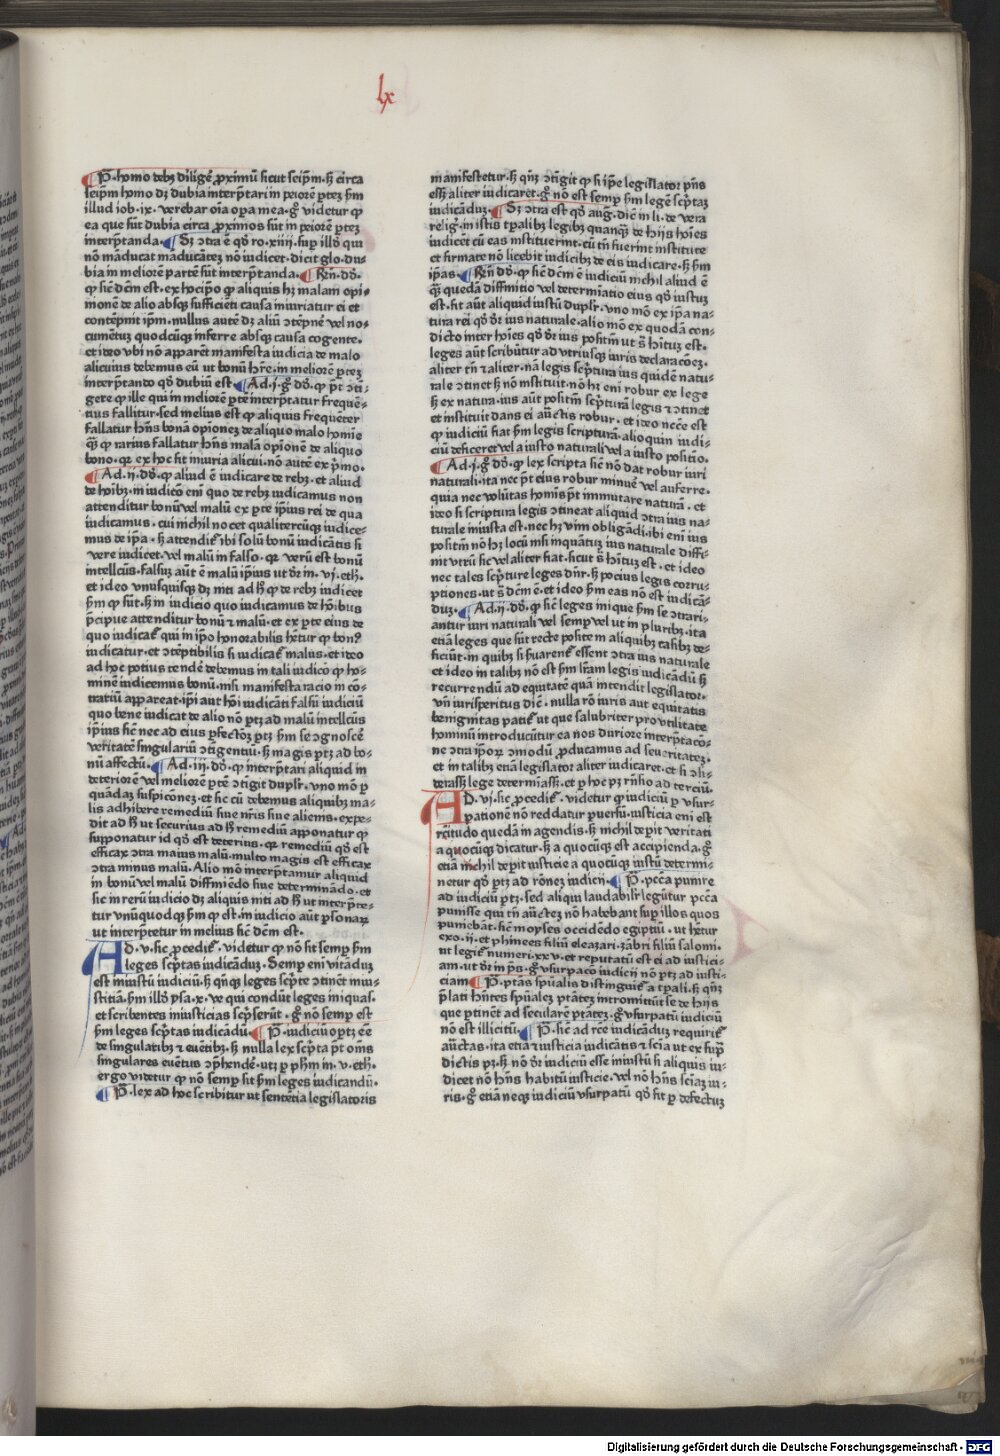 lx
P̄. homo debꝫ diligē ꝓximū sicut seip̄m. sꝫ circa
seip̄m homo dꝫ dubia interp̄tari in peiorē p̄teꝫ s̄m
illud iob. ix. verebar oīa opa mea. gͦ videtur ꝙ
ea que sūt dubia circa ꝓximos sūt in peiorē p̄teꝫ
interp̄tanda. Sꝫ ↄtra ē qð ro. xiiii. sup illð qui
nō māducat māducātez nō iudicet. dicit glo. du-
bia in meliorē partē sūt interp̄tanda. Rn̄. dō.
ꝙ sic̄ dc̄m est. ex hoc ip̄o ꝙ aliquis hꝫ malam opi-
monē de alio absqꝫ sufficiēti causa iniuriatur ei et
contēpnit ip̄m. nullus autē dꝫ aliū ↄtēpne᷑ vel no-
cumētuꝫ quodcūqꝫ inferre absqꝫ causa cogente.
et ideo vbi nō apparēt manifesta iudicia de malo
alicuius debemus eū ut bonū hr̄e. in meliorē p̄teꝫ
interp̄tando qð dubiū est. Ad. j. gͦ dō. ꝙ pt̄ ↄti-
gere ꝙ ille qui in meliorē p̄te interp̄tatur frequē-
tius fallitur. sed melius est ꝙ aliquis frequēter
fallatur hn̄s bonā opionez de aliquo malo homīe
qꝫ̄ ꝙ rarius fallatur hn̄s malā opionē de aliquo
bono. qꝛ ex hoc fit iniuria alicui. nō autē ex p̄mo.
Ad. ij. dō. ꝙ aliud ē iudicare de rebꝫ. et aliud
de hoībꝫ. in iudicō eni quo de rebꝫ iudicamus non
attenditur bonū vel malū ex p̄te ip̄ius rei de qua
iudicamus. cui nichil nocet qualitercūqꝫ iudice-
mus de ip̄a. sꝫ attendit᷑ ibi solū bonū iudicātis si
vere iudicet. vel malū in falso. qꝛ verū est bonū
intellc̄us. falsuꝫ aūt ē malū ip̄ius ut dr̄ in. vj. eth.
et ideo vnusquisqꝫ dꝫ niti ad h̄ ꝙ de rebꝫ iudicet
s̄m ꝙ sūt. sꝫ in iudicio quo iudicamus de hoībus
p̄cipue attenditur bonū ⁊ malū. et ex p̄te eius de
quo iudicat᷑ qui in ip̄o honorabilis hētur ꝙ bonꝰ
iudicatur. et ↄtēptibilis si iudicat᷑ malus. et ideo
ad hoc potius tende᷑ debemus in tali iudicō ꝙ ho-
minē iudicemus bonū. nisi manifesta racio in cō-
trariū appareat. ip̄i aut hoī iudicāti falsū iudiciū
quo bene iudicat de alio nō ꝑtꝫ ad malū intellc̄us
ip̄ius sic̄ nec ad eius ꝑfectōꝫ ꝑtꝫ s̄m se ↄgnosce᷑
veritatē singulariū ↄtigentiū. sꝫ magis ꝑtꝫ ad bo-
nū affectū. Ad. iij. dō. ꝙ interp̄tari aliquid in
deteriorē vel meliorē p̄tē ↄtigit dupl̄r. vno mō ꝑ
quādaꝫ suspicionez. et sic cū debemus aliquibꝫ ma-
lis adhibere remediū siue nr̄is siue aliens. expe-
dit ad h̄ ut securius ad h̄ remediū apponatur ꝙ
supponatur id qð est deterius. qꝛ remediū qð est
efficax ↄtra maius malū. multo magis est efficax
ↄtra minus malū. Alio mō interp̄tamur aliquid
in bonū vel malū diffiniēdo siue determinādo. et
sic in rerū iudicio dꝫ aliquis niti ad h̄ ut interp̄te-
tur vnūquodqꝫ s̄m ꝙ est. in iudicio aūt ꝑsonaꝝ
ut interp̄tetur in melius sic̄ dc̄m est.
Ad. v. sic. ꝓcedit᷑. videtur ꝙ nō sit semp s̄m
leges sc̄ptas iudicāduꝫ. Semp eni vitāduꝫ
est iniustū iudiciū. sꝫ qn̄qꝫ leges sc̄pte ↄtinēt iniu-
stitiā. s̄m illð ysa. x. ve qui condūt leges iniquas.
et scribentes iniusticias sc̄pserūt. gͦ nō semp est
s̄m leges sc̄ptas iudicādū. P̄. iudiciū oportꝫ eē
de singularibꝫ ⁊ euētibꝫ. sꝫ nulla lex sc̄pta pt̄ om̄s
singulares euētus ↄp̄hende᷑. utꝫ ꝑ ph̄m in. v. eth.
ergo videtur ꝙ nō semp sit s̄m leges iudicandū.
P̄. lex ad hoc scribitur ut sentētia legislatoris
manifestetur. sꝫ qn̄qꝫ ↄtigit ꝙ si ip̄e legislator p̄ns
eēt aliter iudicaret. gͦ nō est semp s̄m legē sc̄ptaꝫ
iudicāduꝫ. Sꝫ ↄtra est qð aug. dic̄ in li. de vera
relig. in istis tꝑalibꝫ legibꝫ quanqꝫ de hijs hoīes
iudicēt cū eas instituerint. cū tn̄ fuerint institute
et firmate nō licebit iudicibꝫ de eis iudicare. sꝫ s̄m
ip̄as. Rn̄ dō. ꝙ sic̄ dc̄m ē iudiciū nichil aliud ē
qꝫ̄ quedā diffinitio vel determiatio eius qð iustuꝫ
est. fit aūt aliquid iustū dupl̄r. vno mō ex ipa na-
tura rei qð dr̄ ius naturale. alio mō ex quodā con-
dicto inter hoīes qð dr̄ ius positiū ut s̄ hītuꝫ est.
leges aūt scribūtur ad vtriusqꝫ iuris declaracōeꝫ.
aliter tn̄ ⁊ aliter. nā legis sc̄ptura ius quidē natu-
rale ↄtinet sꝫ nō instituit. nō hꝫ eni robur ex lege
sꝫ ex natura. ius aūt positiū sc̄pturā legis ⁊ ↄtinet
et instituit dans ei auc̄tis robur. et ideo necē est
ꝙ iudiciū fiat s̄m legis scripturā. alioquin iudi-
ciū deficeret vel a iusto naturali vel a iusto positiō.
Ad. j. gͦ dō. ꝙ lex scripta sic̄ nō dat robur iuri
naturali. ita nec pt̄ eius robur minue᷑ vel auferre.
quia nec volūtas homīs pt̄ immutare naturā. et
ideo si scriptura legis ↄtineat aliquid ↄtra ius na-
turale iniusta est. nec hꝫ vim obligādi. ibi eni ius
positiū nō hꝫ locū nisi inquātuꝫ ius naturale diffi-
nit vtrū sic vel aliter fiat. sicut s̄ hītuꝫ est. et ideo
nec tales sc̄pture leges dn̄r. sꝫ pocius legis corru-
ptiones. ut s̄ dc̄m ē. et ideo s̄m eas nō est iudicā-
duꝫ. Ad. ij. dō. ꝙ sic̄ leges inique s̄m se ↄtrari-
antur iuri naturali vel semp vel ut in pluribꝫ. ita
etiā leges que sūt recte posite in aliquibꝫ casibꝫ de-
ficiūt. in quibꝫ si suarent᷑ essent ↄtra ius naturale
et ideo in talibꝫ nō est s̄m l̄ram legis iudicādū sꝫ
recurrendū ad equitatē quā intendit legislator.
vn̄ iurisperitus dic̄. nulla rō iuris aut equitatis
benignitas patit᷑ ut que salubriter pro vtilitate
hominū introducūtur ea nos duriore interp̄tacō-
ne ↄtra ip̄oꝝ ↄmodū ꝓducamus ad seueritateꝫ.
et in talibꝫ etiā legislator aliter iudicaret. et si ↄsi-
derassꝫ lege determiassꝫ. et ꝑ hoc pꝫ rn̄sio ad terciū.
Ad. vj. sic ꝓcedit᷑. videtur ꝙ iudiciū ꝑ vsur-
patiōnē nō reddatur ꝑuersū. iusticia eni est
rc̄itudo quedā in agendis. sꝫ nichil deꝑit veritati
a quocūqꝫ dicatur. sꝫ a quocūqꝫ est accipienda. gͦ
etiā nichil deꝑit iusticie a quocūqꝫ iustū determi-
netur qð ꝑtꝫ ad rōneꝫ iudicij. P̄. pccā punire
ad iudiciū ꝑtꝫ. sed aliqui laudabil̄r legūtur pccā
punisse qui tn̄ auc̄teꝫ nō habebant sup illos quos
puniebāt. sic̄ moyses occidēdo egiptiū. ut hētur
exo. ij. et phinees filiū eleazari. zābri filiū salomi.
ut legit᷑ numeri. xxv. et reputatū est ei ad iustici-
am. ut dr̄ in p̄s. gͦ vsurpacō iudicij nō ꝑtꝫ ad iusti-
ciam. P̄. ptās spūalis distinguit᷑ a tꝑali. sꝫ qn̄qꝫ
p̄lati hn̄tes spūaleꝫ ptāteꝫ intromittūt se de hijs
que ꝑtinēt ad secularē ptāteꝫ. gͦ vsurpatū iudiciū
nō est illicitū. P̄. sic̄ ad rc̄e iudicāduꝫ requirit᷑
auc̄tas. ita etiā ⁊ iusticia iudicātis ⁊ scīa ut ex sup̄
dictis pꝫ. sꝫ nō dr̄ iudiciū esse iniustū si aliquis iu-
dicet nō hn̄s habitū iusticie. vel nō hn̄s scīaꝫ iu-
ris. gͦ etiā neqꝫ iudiciū vsurpatū qð fit ꝑ defectuꝫ
Digitalisierung gefördert durch die Deutsche Forschungsgemeinschaft - DFG